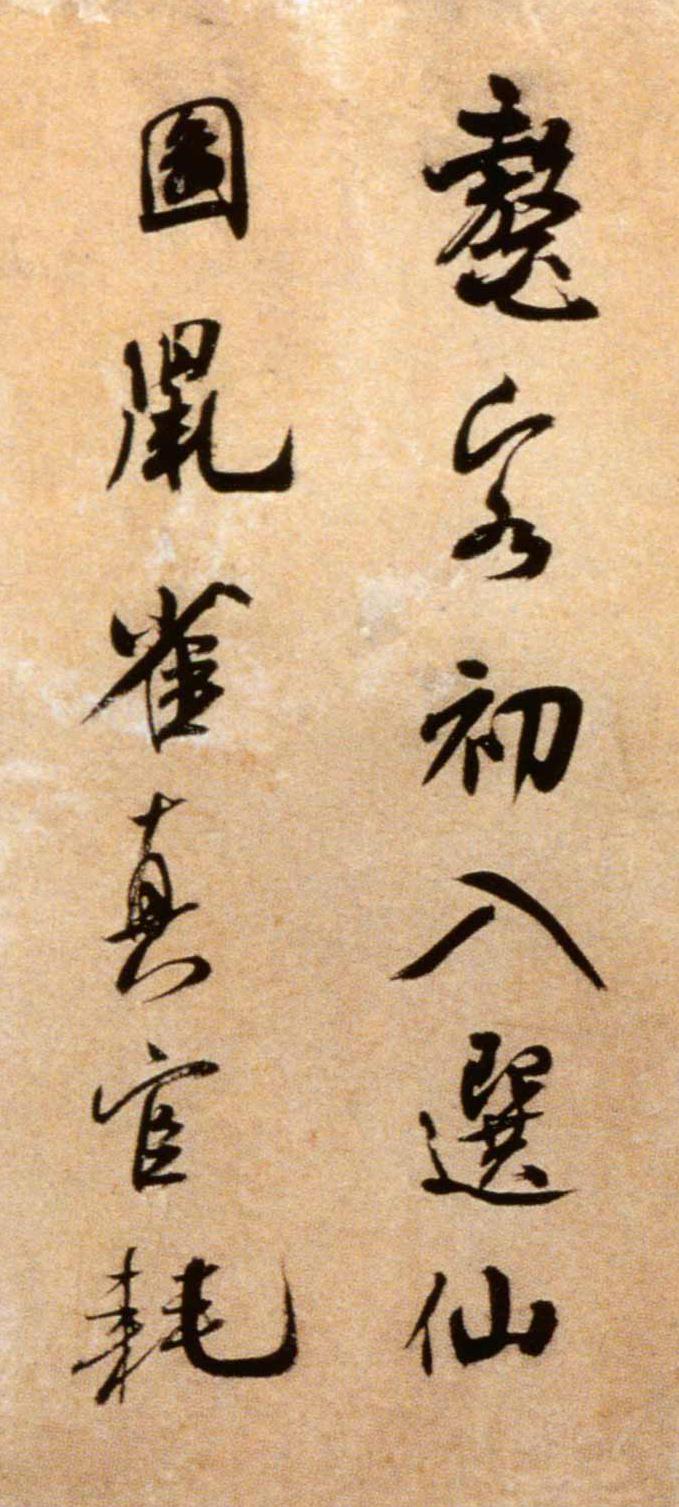 鼇客初入選仙
圖鼠雀真官耗